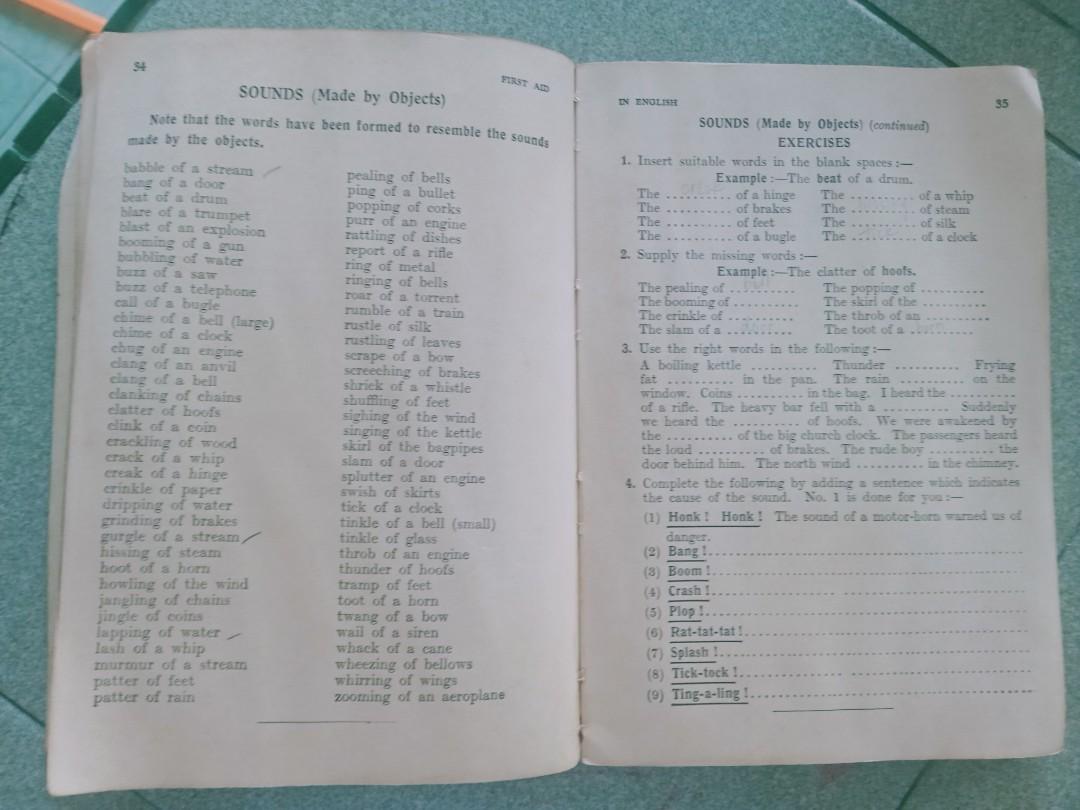 34
FIRST AID
SOUNDS (Made by Objects)
Note that the words have been formed to resemble the sounds
made by the objects.
babble of a stream
bang of a door
beat of a drum
blare of a trumpet
blast of an explosion
booming of a gun
bubbling of water
buzz of a saw
buzz of a telephone
call of a bugle
chime of a bell (large)
chime of a clock
chug of an engine
clang of an anvil
clang of a bell
clanking of chains
clatter of hoofs
clink of a coin
crackling of wood
crack of a whip
creak of a hinge
crinkle of paper
dripping of water
grinding of brakes
gurgle of a stream
hissing of steam
hoot of a horn
howling of the wind
jangling of chains
jingle of coins
lapping of water
lash of a whip
murmur of a stream
patter of feet
patter of rain
pealing of bells
ping of a bullet
popping of corks
purr of an engine
rattling of dishes
report of a rifle
ring of metal
ringing of bells
roar of a torrent
rumble of a train
rustle of silk
rustling of leaves
scrape of a bow
screeching of brakes
shriek of a whistle
shuffling of feet
sighing of the wind
singing of the kettle
skirl of the bagpipes
slam of a door
splutter of an engine
swish of skirts
tick of a clock
tinkle of a bell (small)
tinkle of glass
throb of an engine
thunder of hoofs
tramp of feet
toot of a horn
twang of a bow
wail of a siren
whack of a cane
wheezing of bellows
whirring of wings
zooming of an aeroplane
IN ENGLISH
35
SOUNDS (Made by Objects) (continued)
EXERCISES
1. Insert suitable words in the blank spaces :—
Example :—The beat of a drum.
The .......... of a hinge The .......... of a whip
The .......... of brakes The .......... of steam
The .......... of feet The .......... of silk
The .......... of a bugle The .......... of a clock
2. Supply the missing words :—
Example :—The clatter of hoofs.
The pealing of .......... The popping of ..........
The booming of .......... The skirl of the ..........
The crinkle of .......... The throb of an ..........
The slam of a .......... The toot of a ..........
3. Use the right words in the following :—
A boiling kettle .......... Thunder .......... Frying
fat .......... in the pan. The rain .......... on the
window. Coins .......... in the bag. I heard the ..........
of a rifle. The heavy bar fell with a .......... Suddenly
we heard the .......... of hoofs. We were awakened by
the .......... of the big church clock. The passengers heard
the loud .......... of brakes. The rude boy .......... the
door behind him. The north wind .......... in the chimney.
4. Complete the following by adding a sentence which indicates
the cause of the sound. No. 1 is done for you :—
(1) Honk ! Honk ! The sound of a motor-horn warned us of
danger.
(2) Bang !..........
(3) Boom !..........
(4) Crash !..........
(5) Plop !..........
(6) Rat-tat-tat !..........
(7) Splash !..........
(8) Tick-tock !..........
(9) Ting-a-ling !..........